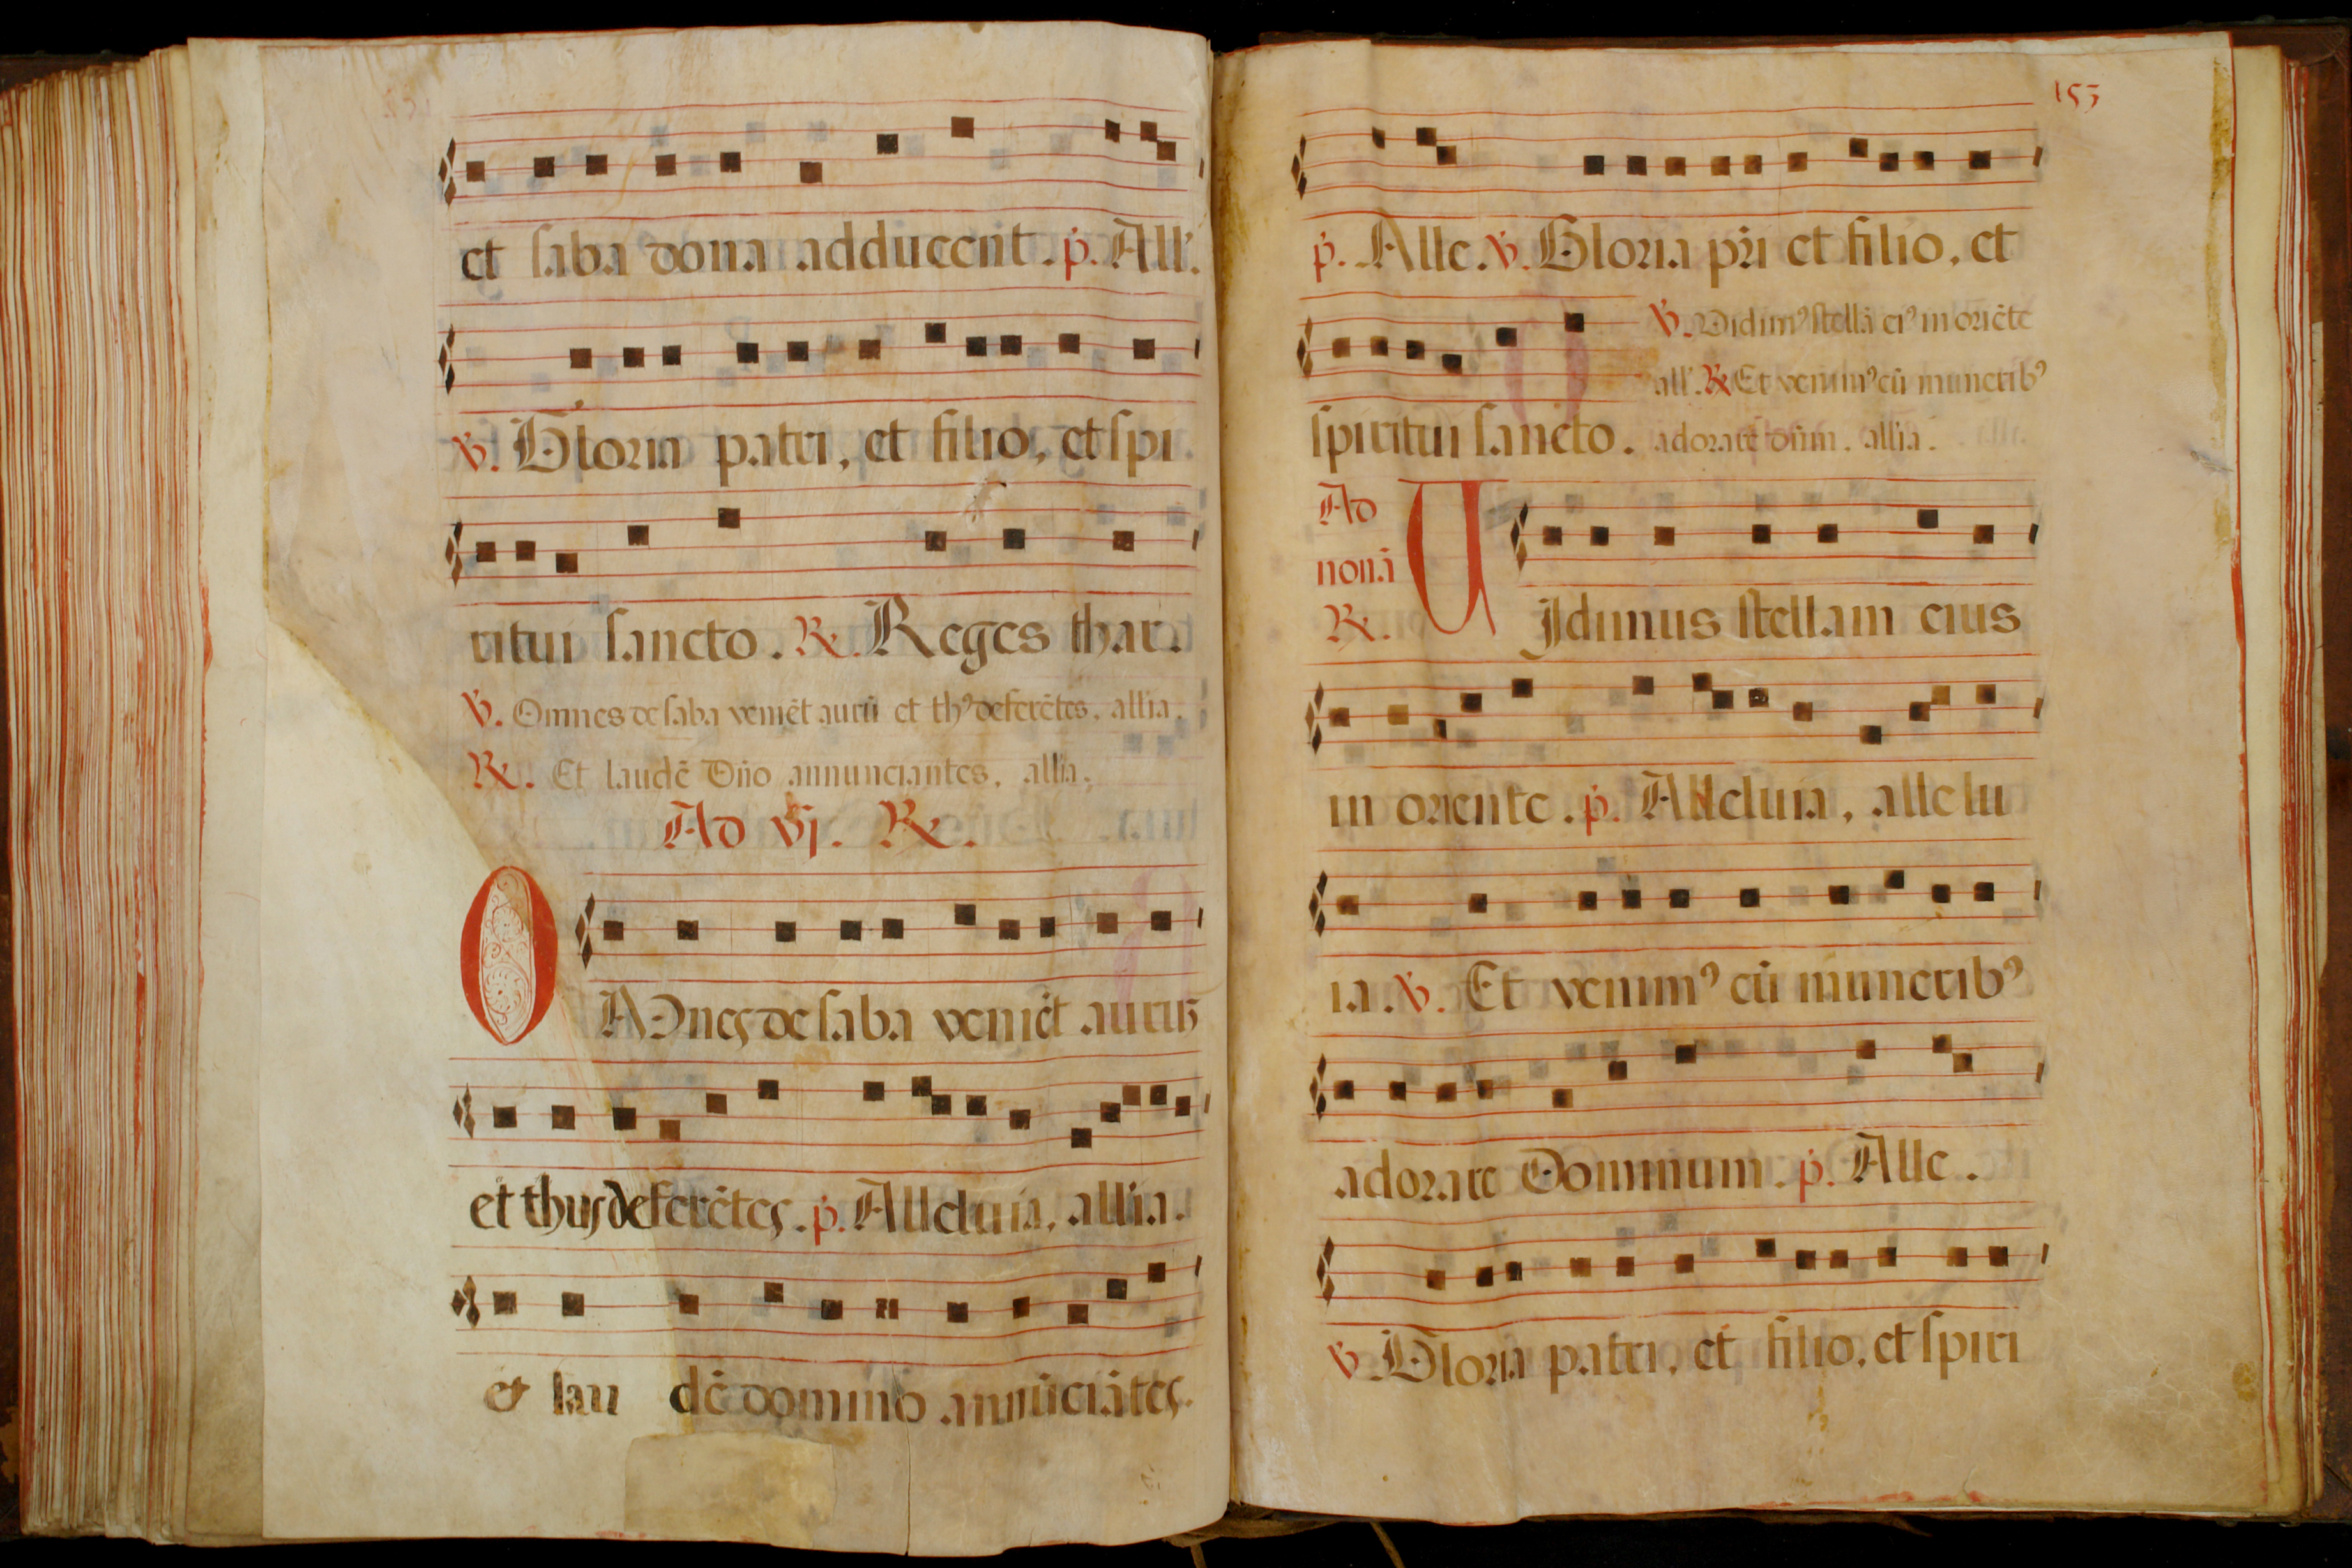 et saba dona adducent. p. All'.
V. Gloria patri, et filio, et spi
ritui sancto. R. Reges thar.
V. Omnes de saba veniēt aurū et thꝰ deferētes, allia.
R. Et laudē Dño annunciantes, allia.
Ad vj. R.
OMnes de saba veniēt aurus
et thus deferētes. p. Alleluia, allia.
et lau dē domino annūciātes.
153
p. Alle. V. Gloria pr̄i et filio, et
V. Vidimꝰ stellā eiꝰ in oriēte
all'. R. Et venimꝰ cū muneribꝰ
spiritui sancto. adorare dñm. allia.
Ad
nonā
R.
VIdimus stellam eius
in oriente. p. Alleluia, allelu
ia. V. Et venimꝰ cū muneribꝰ
adorare Dominum. p. Alle.
V. Gloria patri, et filio, et spiri